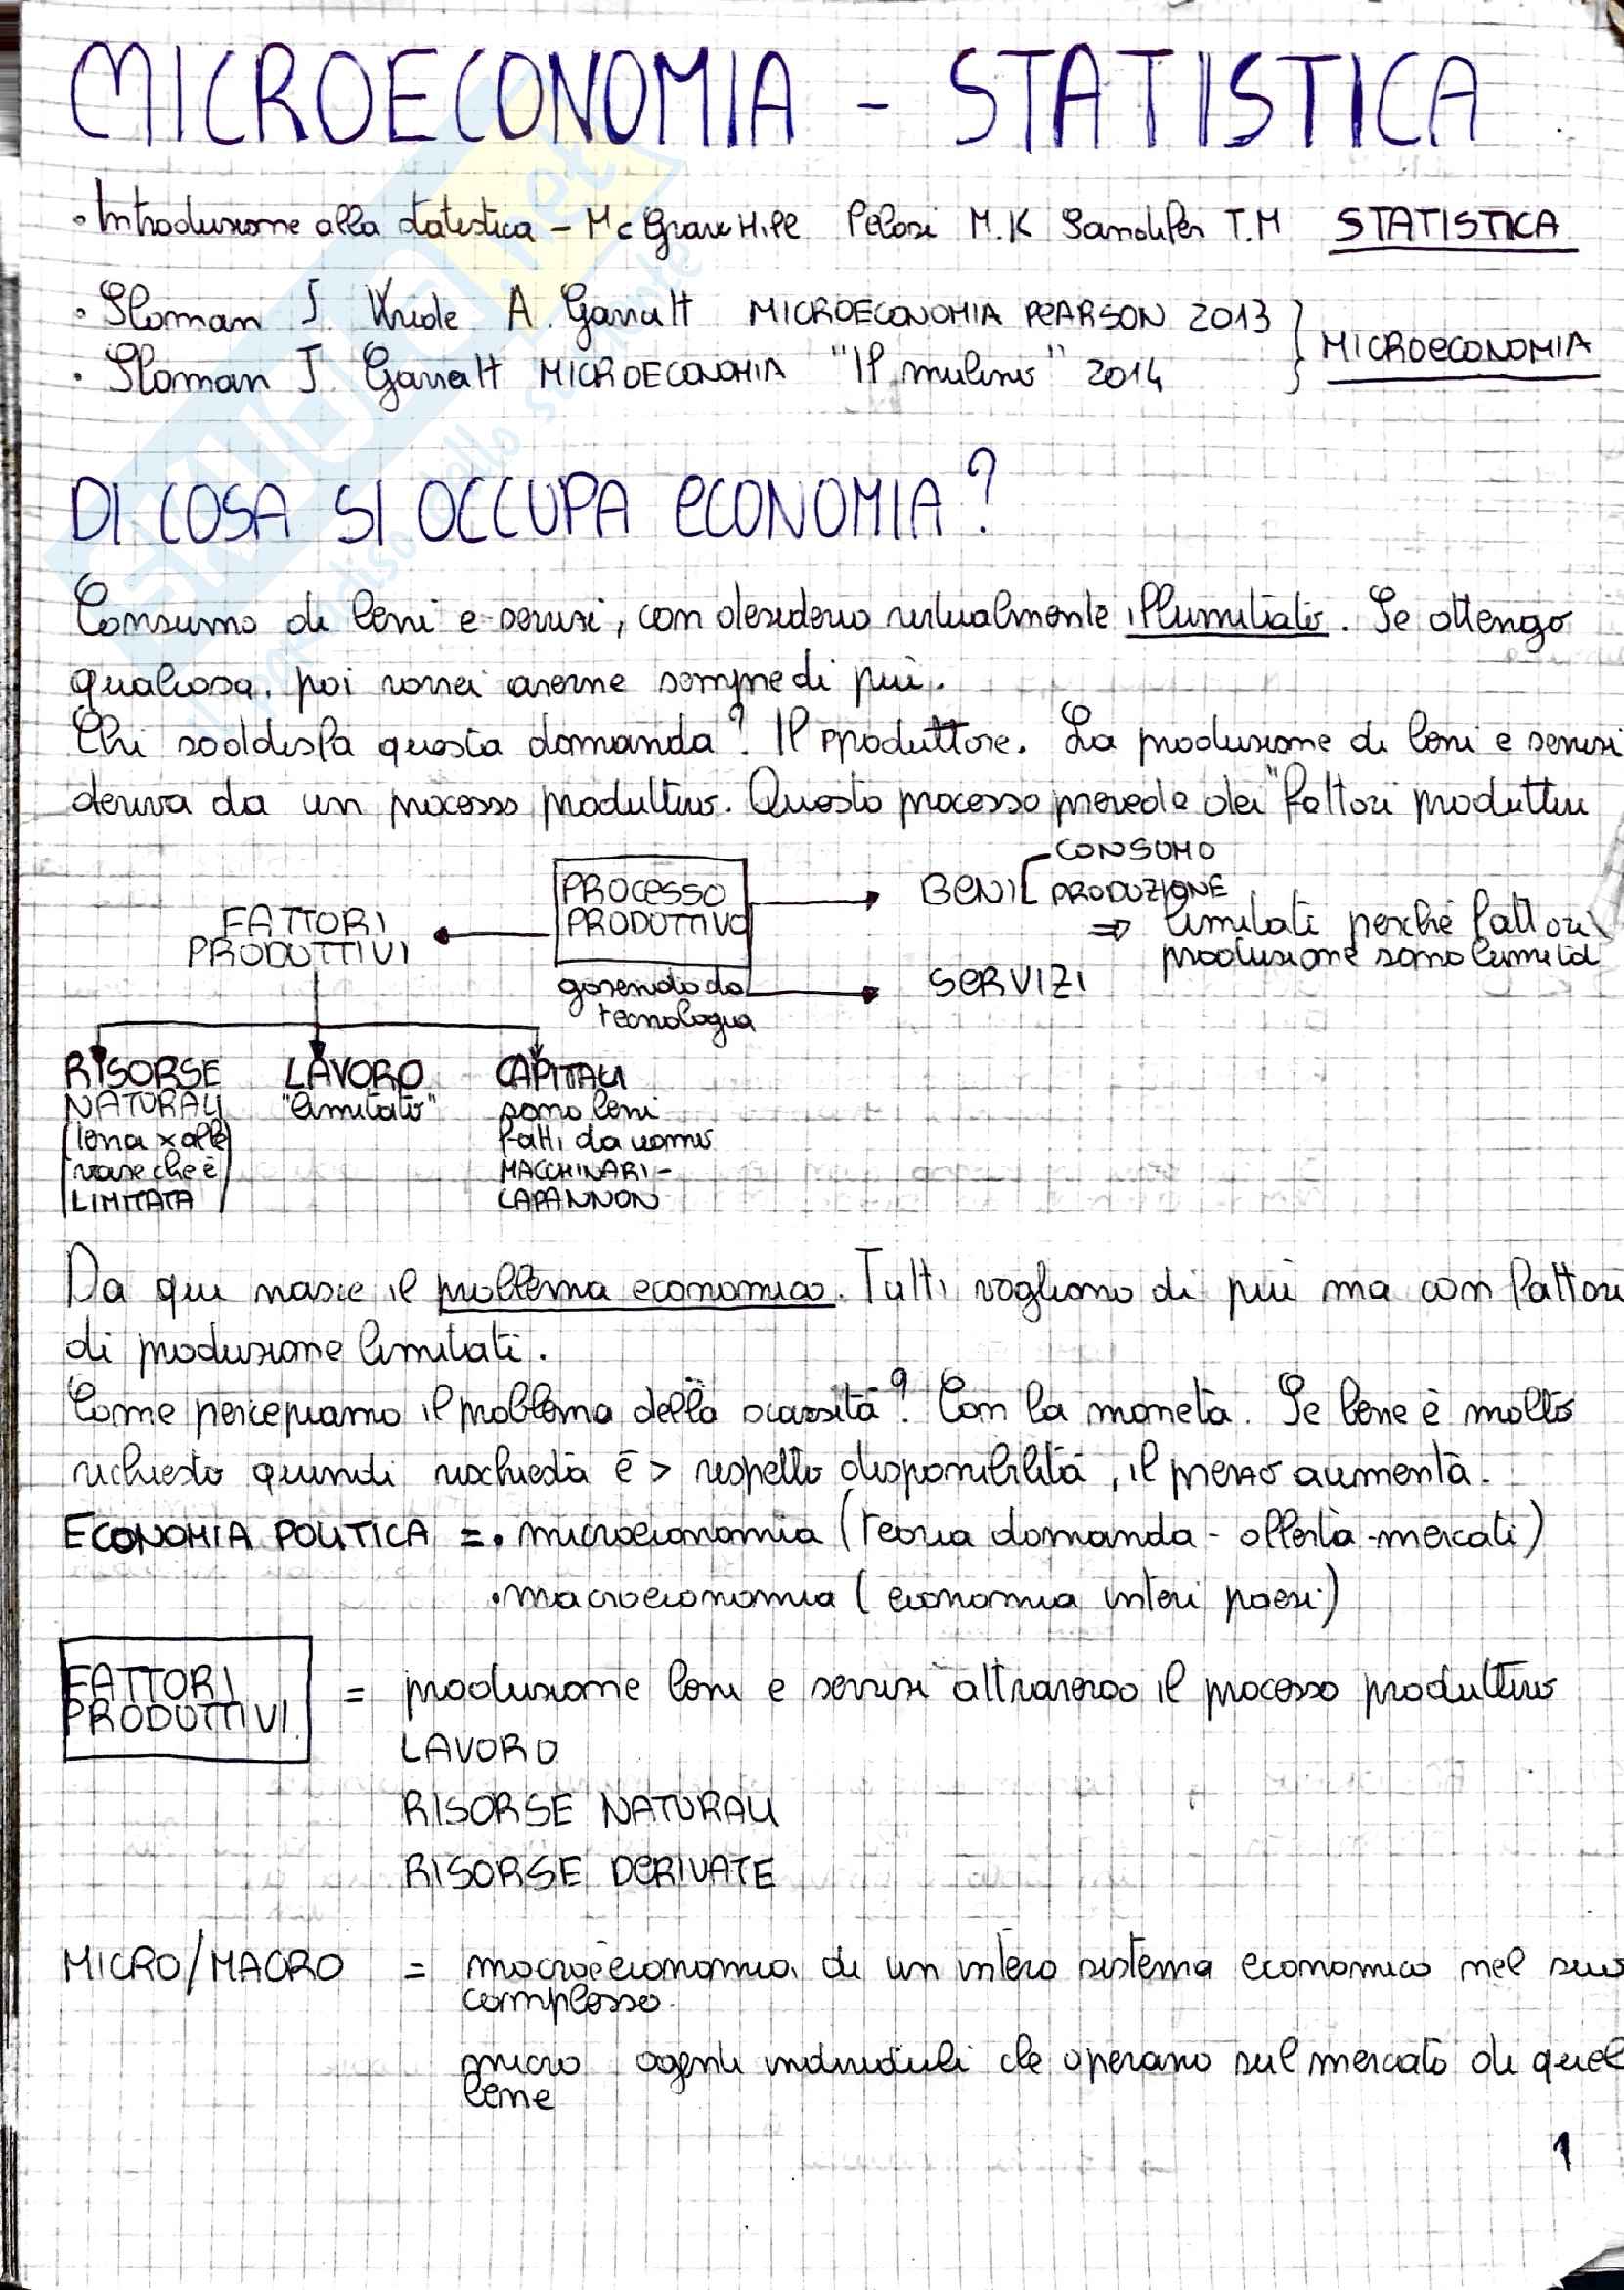 MICROECONOMIA - STATISTICA
• Introduzione alla statistica - Mc Graw Hill Pelosi M.K Sandifer T.M STATISTICA
• Sloman J. Wride A. Garratt MICROECONOMIA PEARSON 2013
MICROECONOMIA
• Sloman J. Garratt MICROECONOMIA "Il mulino" 2014
DI COSA SI OCCUPA ECONOMIA?
Consumo di beni e servizi, con desiderio virtualmente illimitato. Se ottengo
qualcosa, poi vorrei averne sempre di più.
Chi soddisfa questa domanda? Il produttore. La produzione di beni e servizi
deriva da un processo produttivo. Questo processo prevede dei "fattori produttivi
CONSUMO
PROCESSO
BENI
PRODUZIONE
FATTORI
PRODUTTIVO
⇒ limitati perché fattori
PRODUTTIVI
produzione sono limitati
SERVIZI
tecnologia
RISORSE LAVORO CAPITALI
NATURALI "limitato" sono beni
(terra x alle fatti da uomo
vare che è MACCHINARI -
LIMITATA CAPANNON
Da qui nasce il problema economico. Tutti vogliono di più ma con fattori
di produzione limitati.
Come percepiamo il problema della scarsità? Con la moneta. Se bene è molto
richiesto quindi richiesta è > rispetto disponibilità, il prezzo aumenta.
ECONOMIA POLITICA = • microeconomia (teoria domanda - offerta - mercati)
• macroeconomia (economia interi paesi)
FATTORI
PRODUTTIVI = produzione beni e servizi attraverso il processo produttivo
LAVORO
RISORSE NATURALI
RISORSE DERIVATE
MICRO/MACRO = macroeconomia di un intero sistema economico nel suo
complesso.
micro agenti individuali che operano sul mercato di quel
bene
1